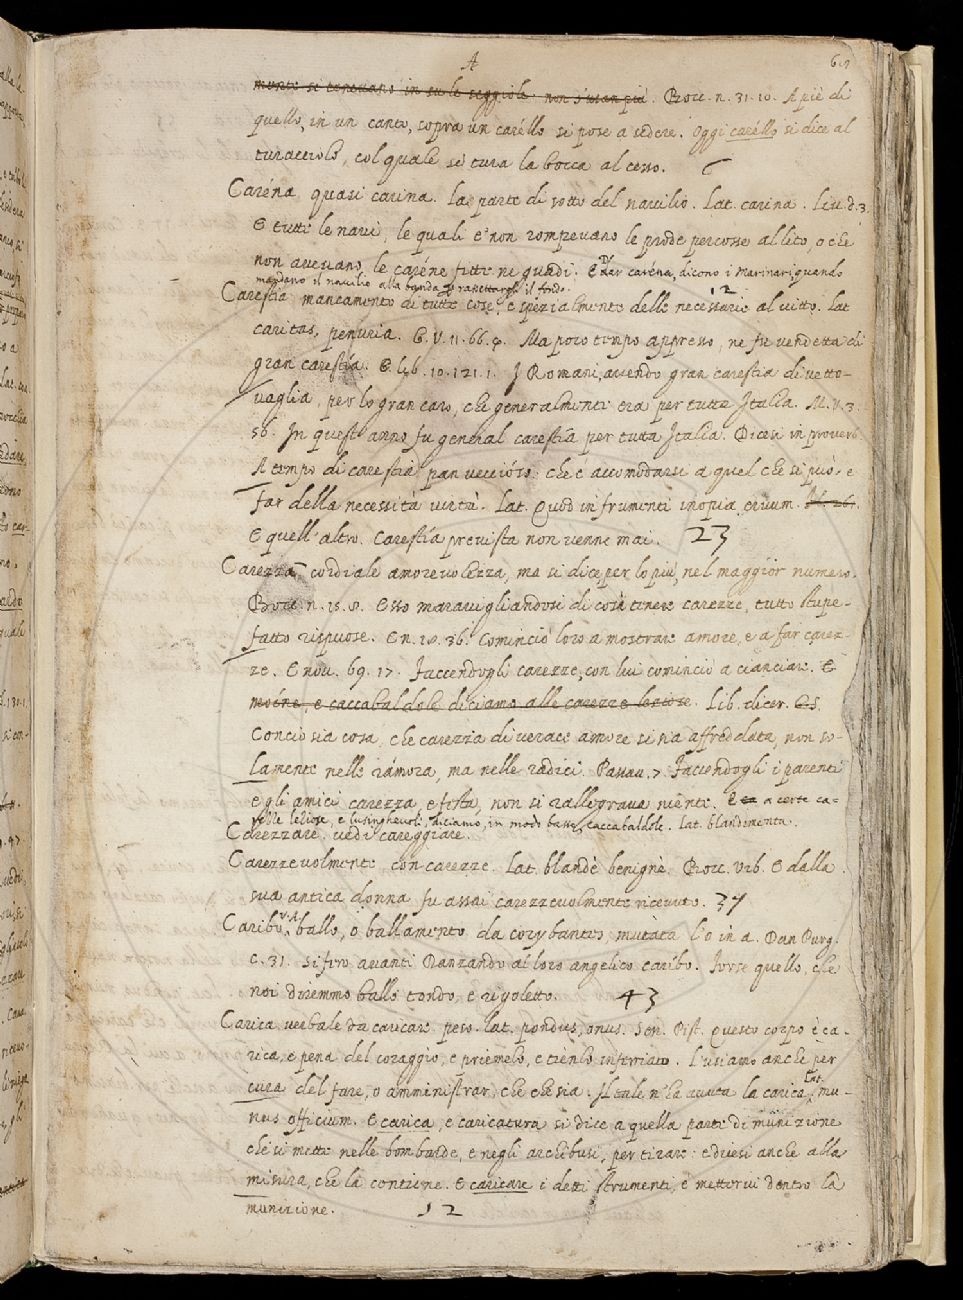 A
mente si tenevano in su le seggiole. non s'usan più. Bocc. n. 31. 10. A piè di
quello, in un canto, sopra un caréllo si pose a sedere. Oggi caréllo si dice al
turacciolo, col quale si tura la bocca al cesso.
Caréna, quasi carina. la parte di sotto del navilio. Lat. carina. Liv. d. 3.
E tutte le navi, le quali e' non rompevano le prode percosse al lito, o che
non avevano le caréne fitte ne guadi. E Dar caréna, dicono i Marinari quando
mandano il navilio alla banda
Carestia mancamento di tutte cose, e spezialmente delle necessarie al vitto. Lat
12
caritas, penuria. G. V. 11. 66. 4. Ma poco tempo appresso, ne fu vendetta di
gran carestía. E lib. 10. 121. 1. J Romani, avendo gran carestia di vetto-
vaglia, per lo gran caro, che generalmente era per tutta Italia. M. V. 3.
56. In quest'anno fu general carestía per tutta Italia. Dicesi in proverb.
A tempo di carestia pan veccióso: che è accomodarsi a quel che si può, e
far della necessità virtù. Lat. Quod in frumenti inopia, ervum.
E quell'altro. Carestía prevista non venne mai. 23
Carezza, cordiale amorevolezza, ma si dice per lo più, nel maggior numero.
Bocc. n. 15. 8. Esso maravigliandosi di così tenere carezze, tutto stupe-
fatto rispuose. E n. 18. 36. Cominciò loro a mostrare amore, e a far carez-
ze. E nov. 69. 17. Faccendogli carezze, con lui cominciò a cianciare. E
moéne, e caccabaldole diciamo alle carezze leziose. Lib. dicer. G. S.
Conciosia cosa, che carezza di verace amore si sia affreddata, non so-
lamente nelle rámora, ma nelle radici. Passav. 7. Faccendogli i parenti
e gli amici carezza, e festa, non si rallegrava niente. E a certe ca-
rezze leziose, e lusinghevoli, diciamo, in modo basso, caccabaldole. Lat. blandimenta.
Carezzare. vedi careggiare.
Carezzevolmente con carezze. Lat. blandè benignè. Bocc. Urb. E dalla
sua antica donna fu assai carezzevolmente ricevuto. 34
Caribo V. A. ballo, o ballamento da corybantes, mutata l'o in a. Dan Purg.
c. 31. Si fero avanti Danzando al loro angelico caribo. Forse quello, che
noi diremmo ballo tondo, e rigoletto. 43
Carica verbale da caricare. peso. lat. pondus, onus. Sen. Pist. Questo corpo è ca-
rica, e pena del coraggio, e priemelo, e tienlo inserrato. L'usiamo anche per
cura del fare, o amministrar, che che sia. Il tale n'ha avuta la carica, Lat. mu-
nus officium. E carica, e caricatura si dice a quella parte di munizione
che si mette nelle bombarde, e negli archibusi, per tirare: e dicesi anche alla
misura, che la contiene. E caricare i detti strumenti, è mettervi dentro la
munizione. 12